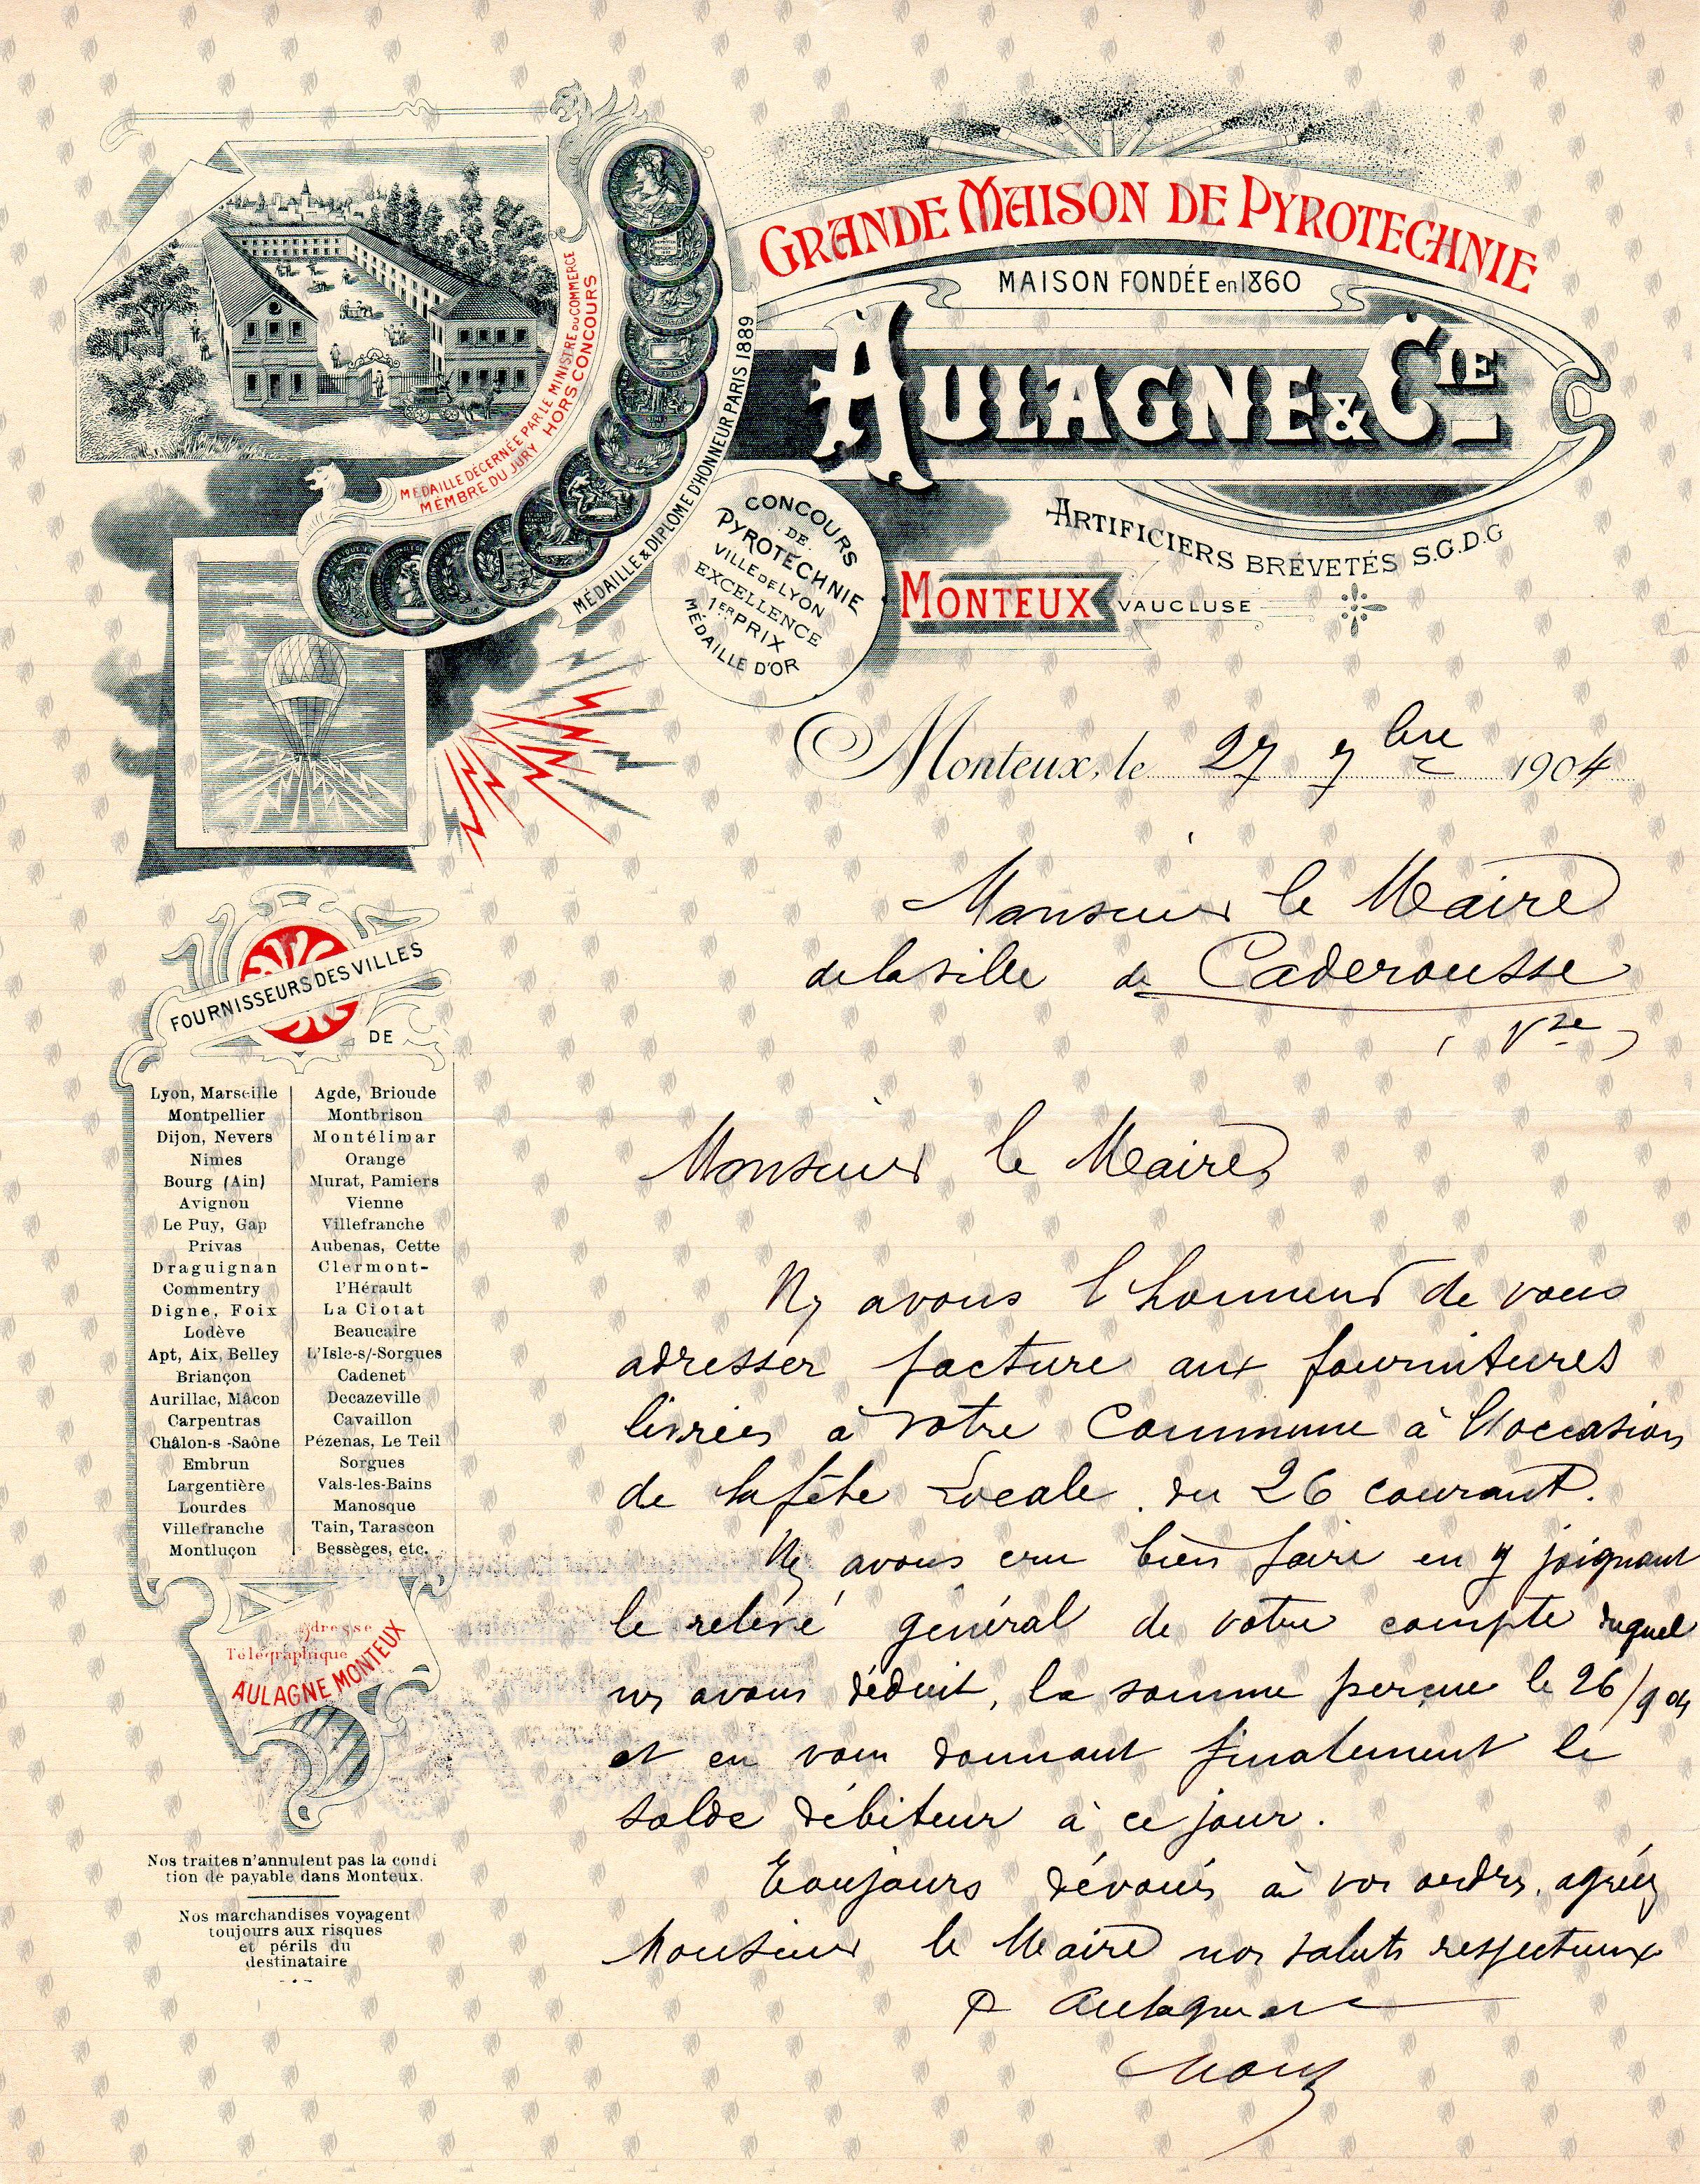 GRANDE MAISON DE PYROTECHNIE
MAISON FONDÉE en 1860
AULAGNE & CIE
ARTIFICIERS BREVETÉS S.G.D.G
MONTEUX VAUCLUSE
MÉDAILLE DÉCERNÉE PAR LE MINISTRE DU COMMERCE
MEMBRE DU JURY HORS CONCOURS
MÉDAILLE & DIPLOME D'HONNEUR PARIS 1889
CONCOURS
DE
PYROTECHNIE
VILLE DE LYON
EXCELLENCE
1ER PRIX
MÉDAILLE D'OR
Monteux, le 27 7bre 1904
Monsieur le Maire
de la ville de Caderousse
(Vse)
Monsieur le Maire,
Ns avons l'honneur de vous
adresser facture aux fournitures
livrées à votre Commune à l'occasion
de la fête Locale du 26 courant.
Ns avons cru bien faire en y joignant
le relevé général de votre compte duquel
ns avons déduit, la somme perçue le 26/9 04
et en vous donnant finalement le
solde débiteur à ce jour.
Toujours dévoués à vos ordres, agréez
Monsieur le Maire nos saluts respectueux
Aulagne
FOURNISSEURS DES VILLES
DE
Lyon, Marseille
Montpellier
Dijon, Nevers
Nimes
Bourg (Ain)
Avignon
Le Puy, Gap
Privas
Draguignan
Commentry
Digne, Foix
Lodève
Apt, Aix, Belley
Briançon
Aurillac, Mâcon
Carpentras
Châlon-s-Saône
Embrun
Largentière
Lourdes
Villefranche
Montluçon
Agde, Brioude
Montbrison
Montélimar
Orange
Murat, Pamiers
Vienne
Villefranche
Aubenas, Cette
Clermont-
l'Hérault
La Ciotat
Beaucaire
L'Isle-s/-Sorgues
Cadenet
Decazeville
Cavaillon
Pézenas, Le Teil
Sorgues
Vals-les-Bains
Manosque
Tain, Tarascon
Bessèges, etc.
Adresse
Télégraphique
AULAGNE MONTEUX
Nos traites n'annulent pas la condi
tion de payable dans Monteux.
Nos marchandises voyagent
toujours aux risques
et périls du
destinataire